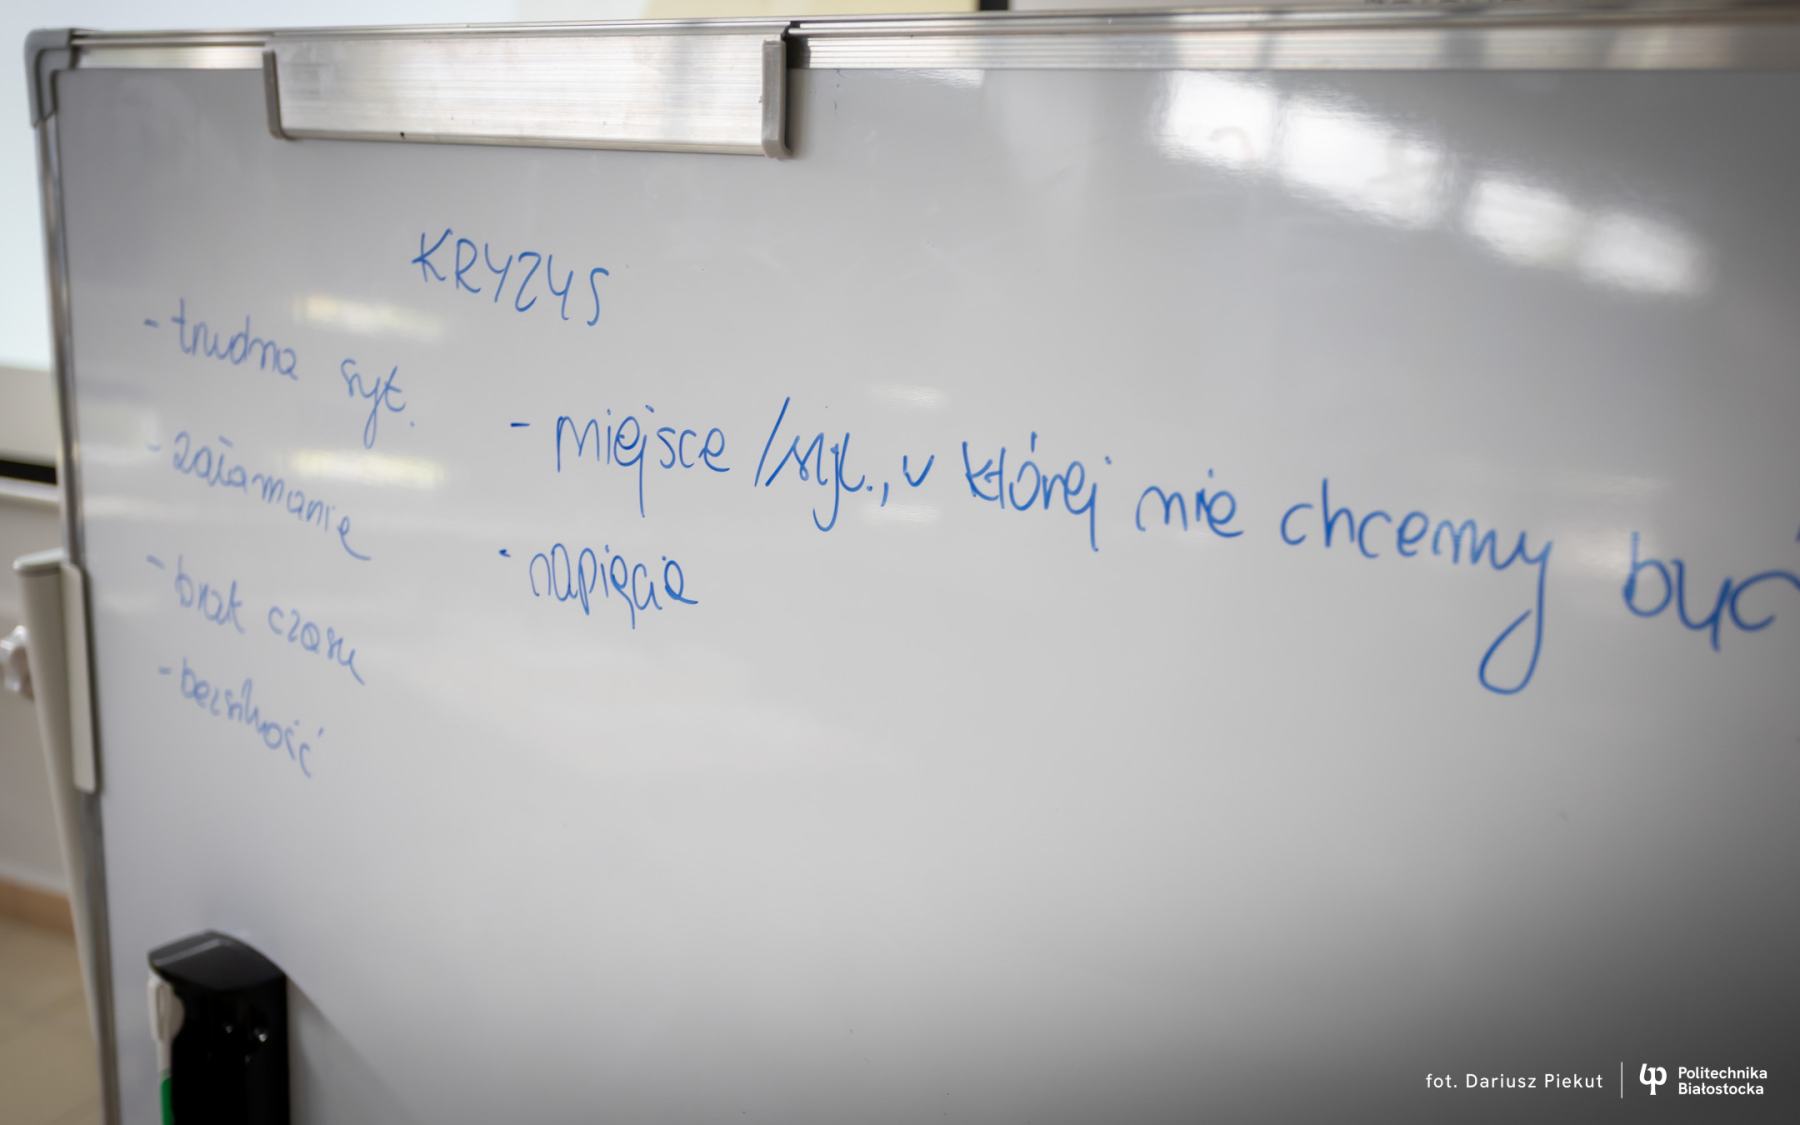 KRYZYS
- trudna syt.
- załamanie
- brak czasu
- bezsilność
- miejsce /syt., w której nie chcemy być
- napięcie
fot. Dariusz Piekut
Politechnika
Białostocka